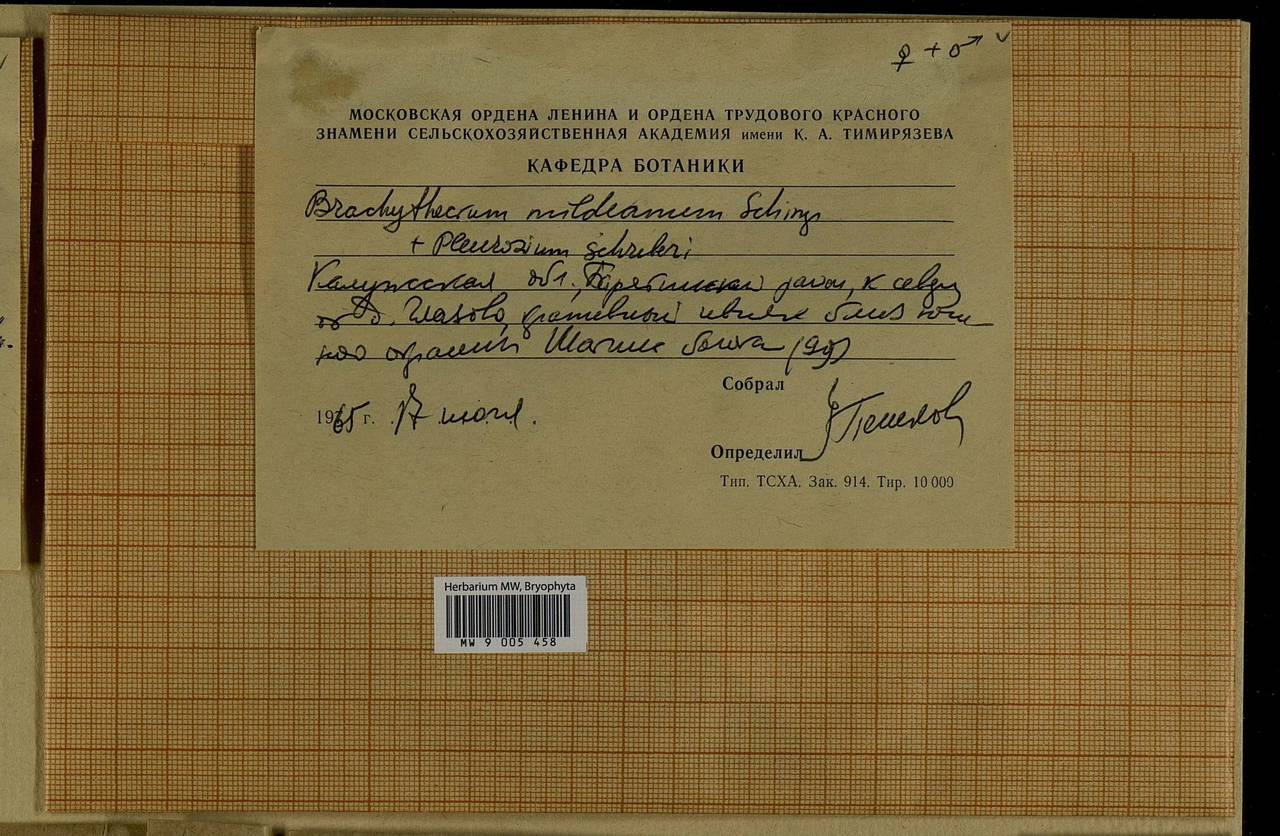 ♀ + ♂ ✓
МОСКОВСКАЯ ОРДЕНА ЛЕНИНА И ОРДЕНА ТРУДОВОГО КРАСНОГО
ЗНАМЕНИ СЕЛЬСКОХОЗЯЙСТВЕННАЯ АКАДЕМИЯ имени К. А. ТИМИРЯЗЕВА
КАФЕДРА БОТАНИКИ
Brachythecium mildeanum Schimp
+ Pleurozium schreberi
Калужская обл., Барятинский район, к северу
от д. Глазово, близ юж-
ного болота (99)
Собрал
1965 г. 17 июля.
Определил
Тип. ТСХА. Зак. 914. Тир. 10 000
Herbarium MW, Bryophyta
MW 9 005 458